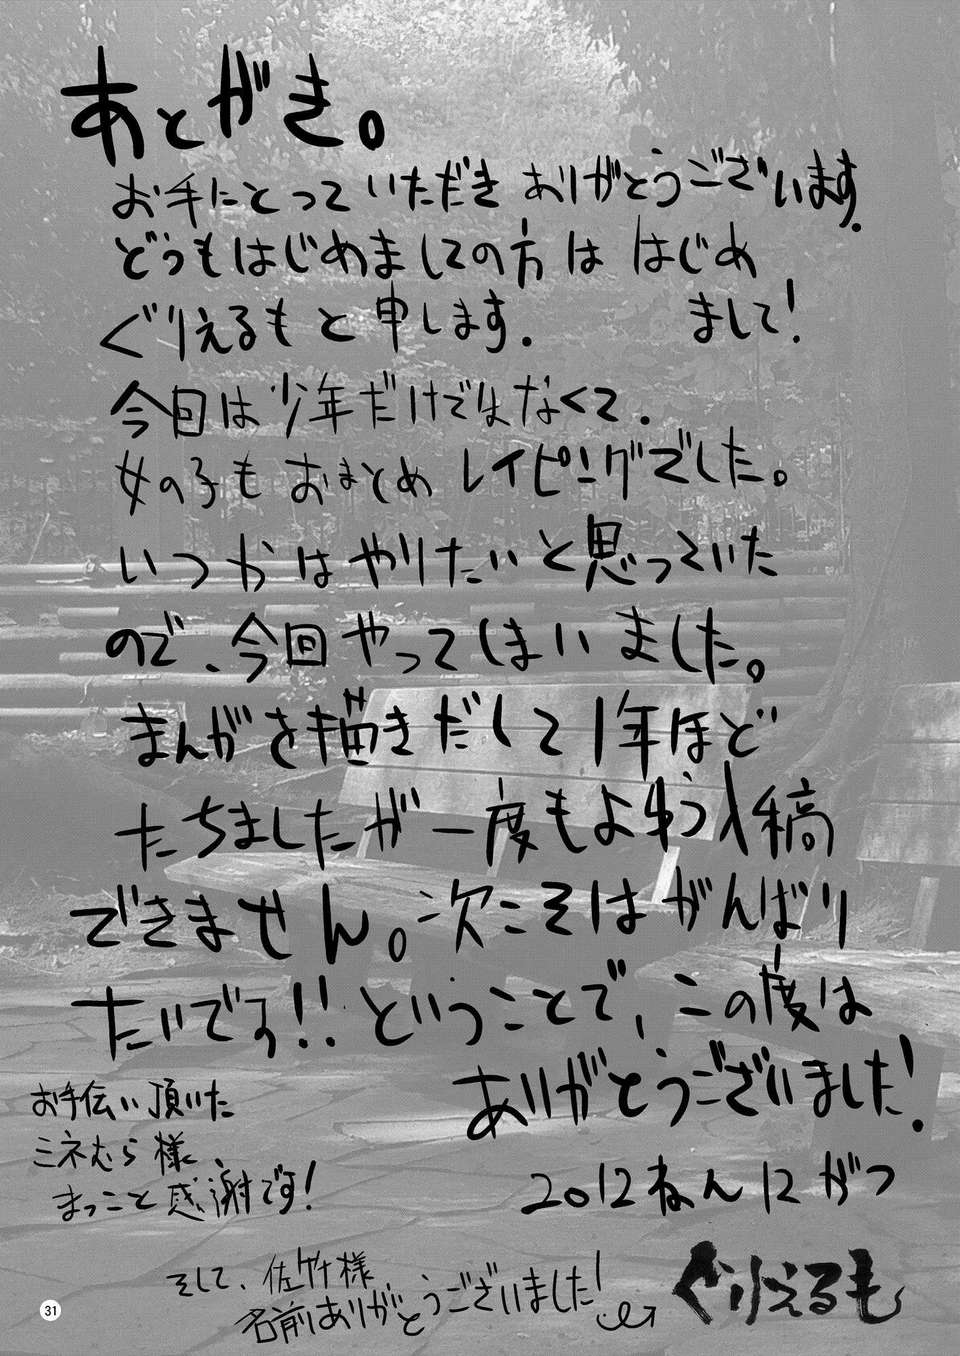 あとがき。
お手にとっていただき ありがとうございます.
どうもはじめましての方は はじめ
まして!
ぐりえるもと申します.
今回は少年だけではなくて.
女の子も おまとめ レイピングでした。
いつかはやりたいと思っていた
ので、今回やってしまいました。
まんがを描きだして1年ほど
たちましたが一度もよゆう入稿
できません。次こそはがんばり
たいです!! ということで、この度は
ありがとうございました!
お手伝い頂いた
ミネむら様、
まっこと感謝です!
2012ねん12がつ
そして、佐竹様
名前ありがとうございました!
ぐりえるも
31